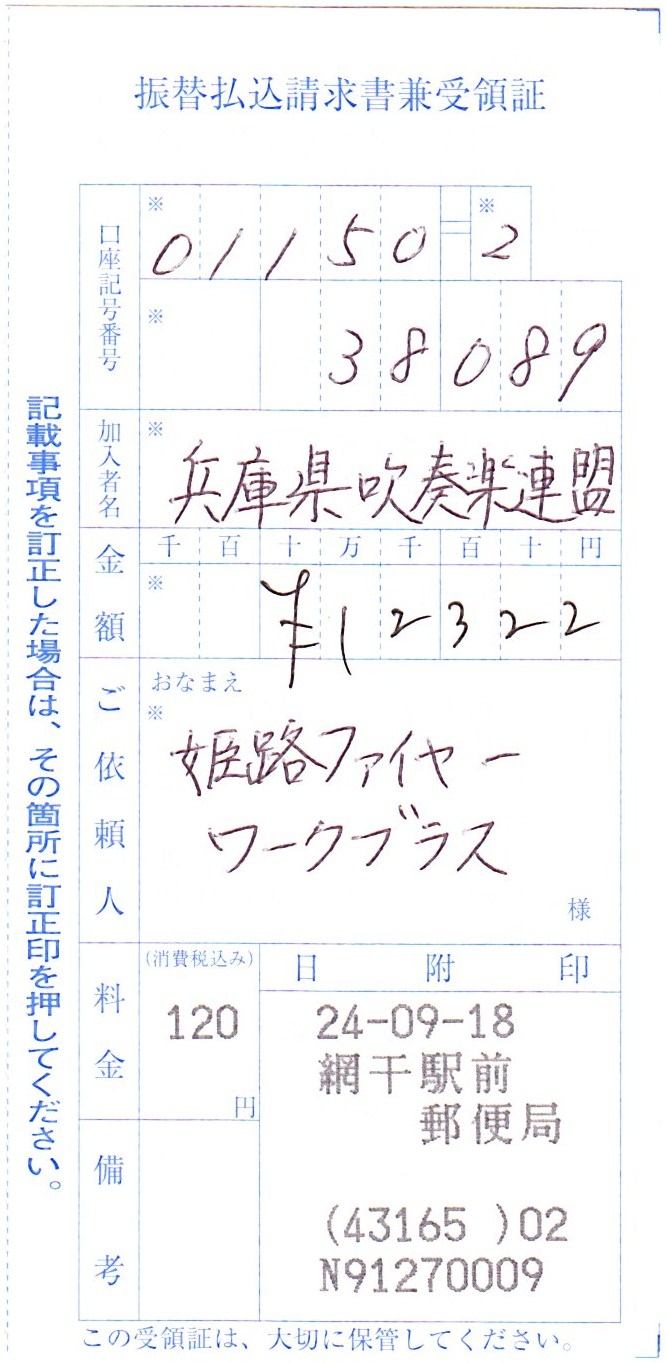 振替払込請求書兼受領証
口座記号番号
※ ※
01150=2
※
38089
加入者名
※
兵庫県吹奏楽連盟
金額
千百十万千百十円
※
¥12322
ご依頼人
おなまえ
※
姫路ファイヤー
ワークブラス
様
料金
(消費税込み)
120
円
日附印
24-09-18
網干駅前
郵便局
(43165 )02
N91270009
備考
この受領証は、大切に保管してください。
記載事項を訂正した場合は、その箇所に訂正印を押してください。